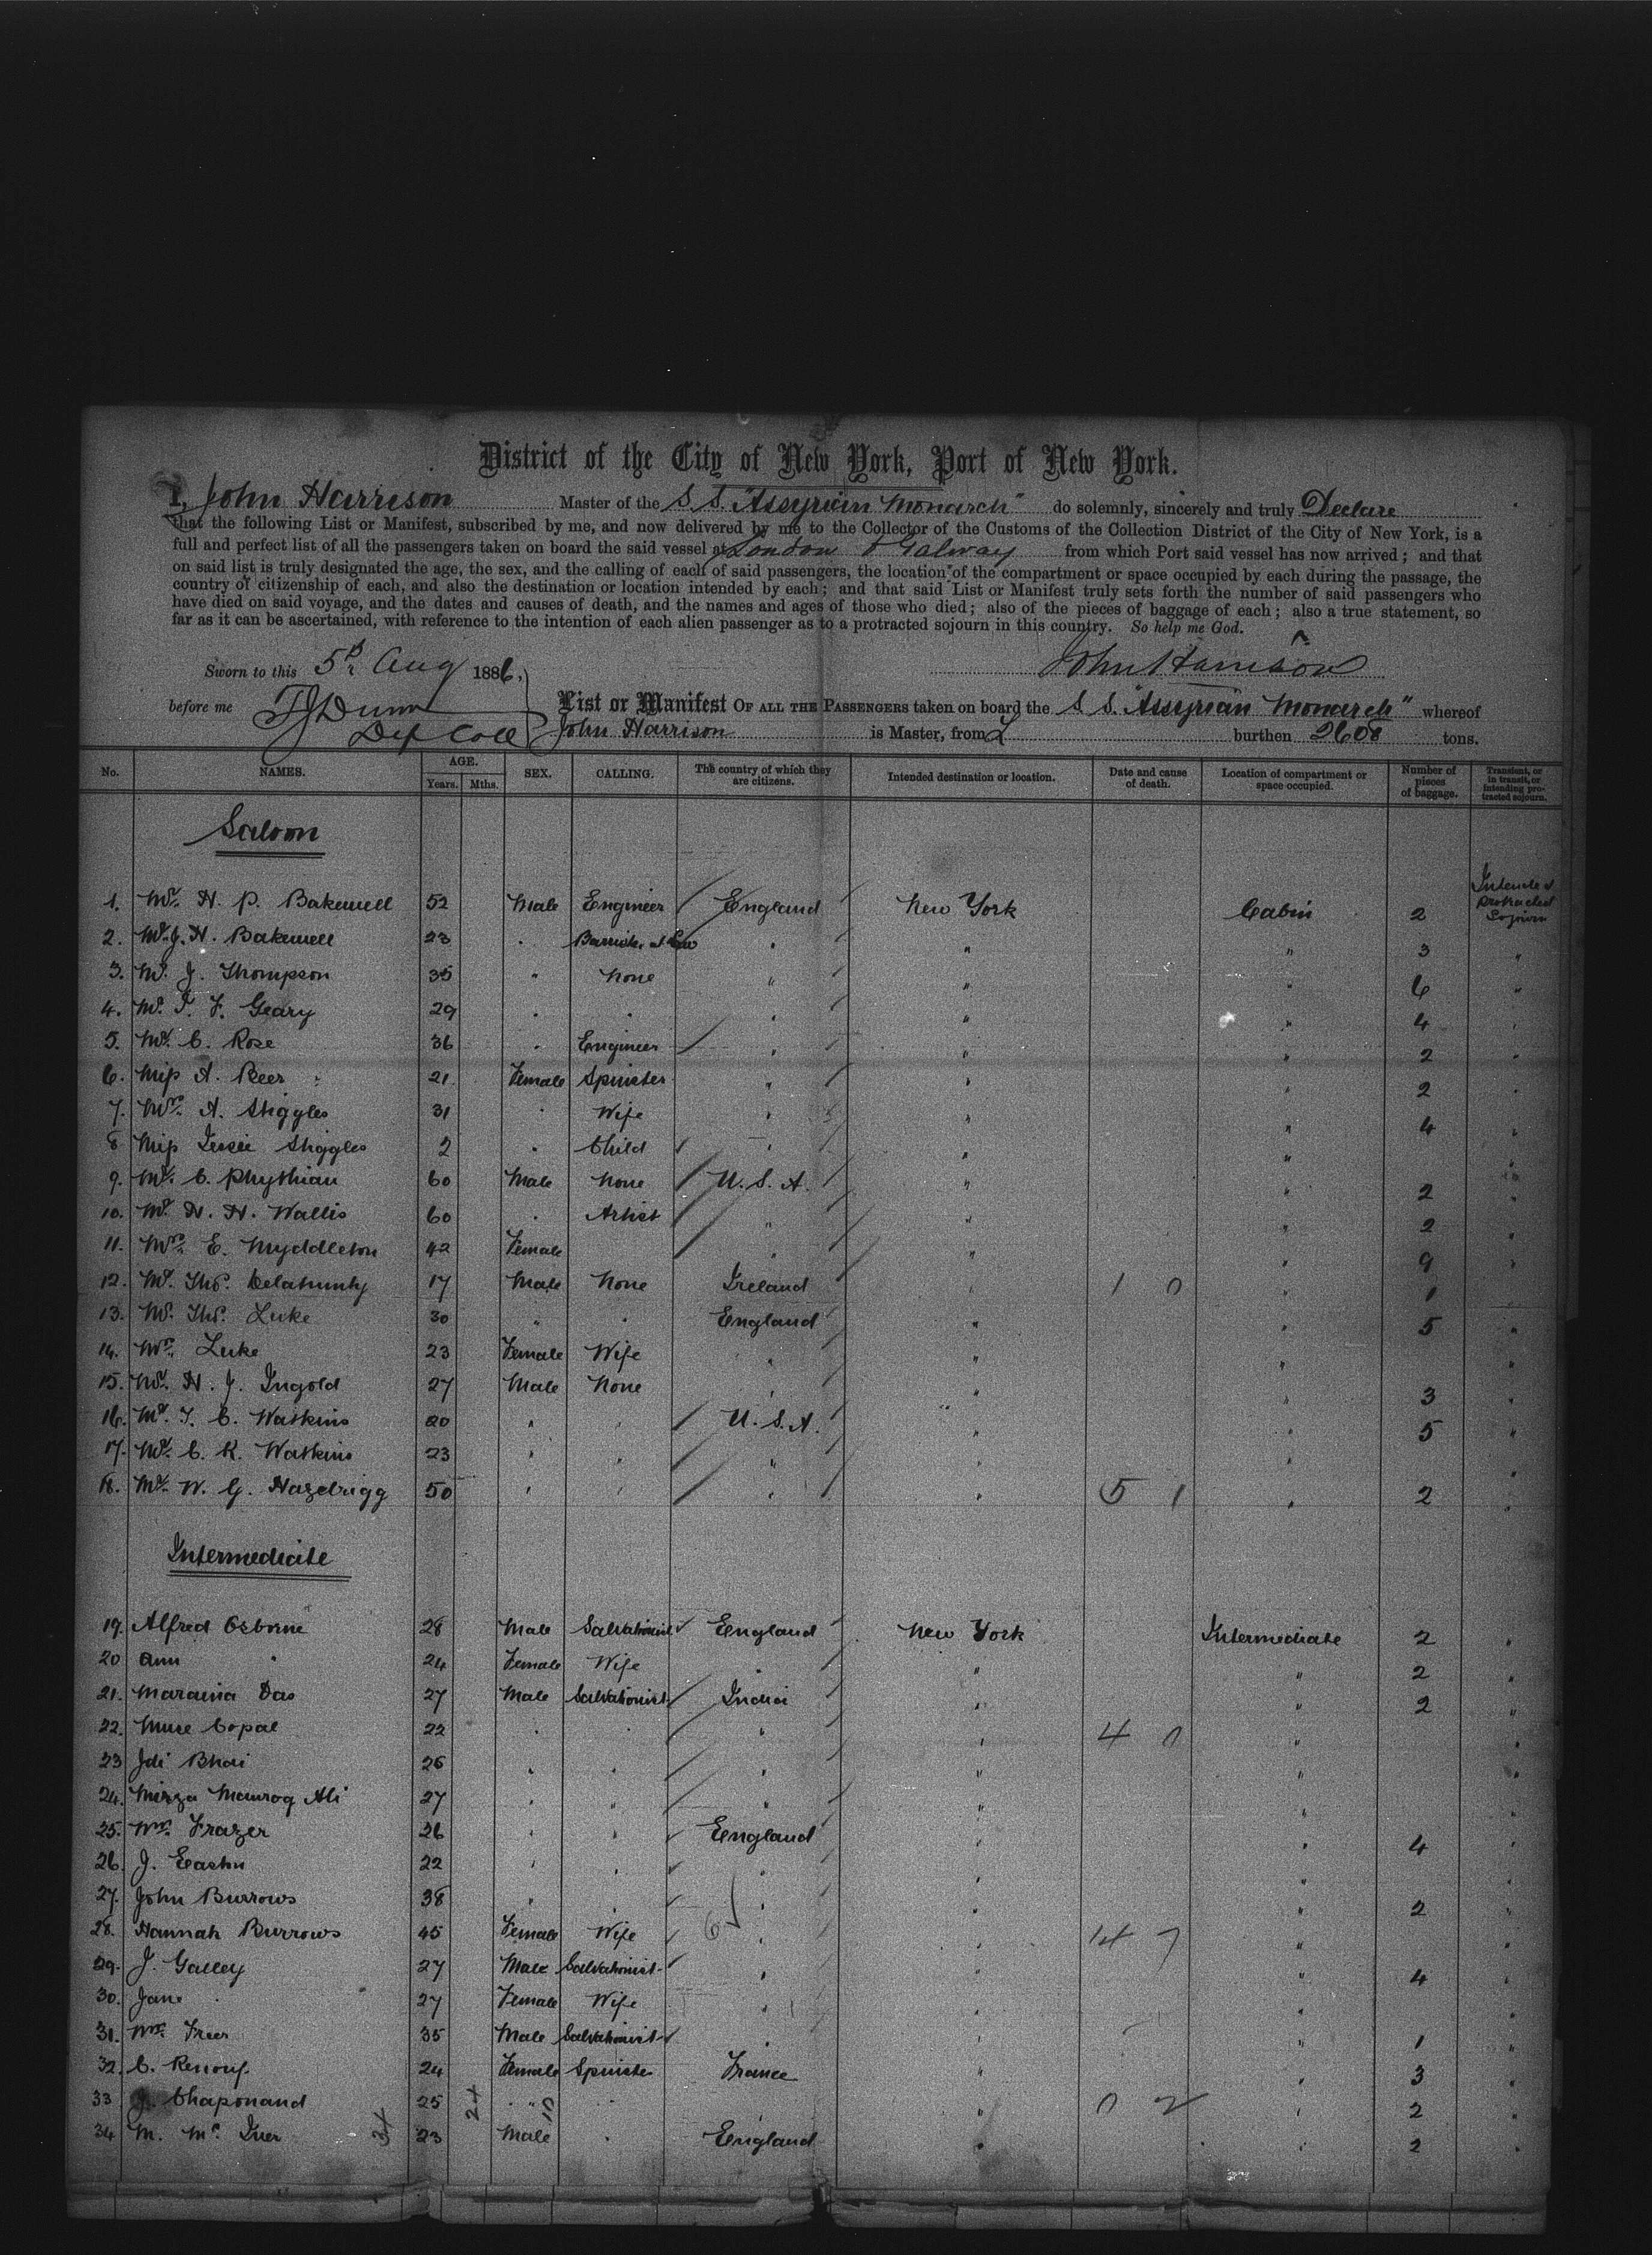 District of the City of New York, Port of New York.
I, John Harrison Master of the S S. "Assyrian Monarch" do solemnly, sincerely and truly Declare
that the following List or Manifest, subscribed by me, and now delivered by me to the Collector of the Customs of the Collection District of the City of New York, is a
full and perfect list of all the passengers taken on board the said vessel at London & Galway from which Port said vessel has now arrived; and that
on said list is truly designated the age, the sex, and the calling of each of said passengers, the location of the compartment or space occupied by each during the passage, the
country of citizenship of each, and also the destination or location intended by each; and that said List or Manifest truly sets forth the number of said passengers who
have died on said voyage, and the dates and causes of death, and the names and ages of those who died; also of the pieces of baggage of each; also a true statement, so
far as it can be ascertained, with reference to the intention of each alien passenger as to a protracted sojourn in this country. So help me God.
Sworn to this 5th Aug 1886, John Harrison
before me TJ Dunn List or Manifest OF ALL THE PASSENGERS taken on board the S S. "Assyrian Monarch" whereof
Dep Coll John Harrison is Master, from L burthen 2608 tons.
No. NAMES. AGE. Years. Mths. SEX. CALLING. The country of which they are citizens. Intended destination or location. Date and cause of death. Location of compartment or space occupied. Number of pieces of baggage. Transient, or in transit, or intending protracted sojourn.
Saloon
1. Mr. H. P. Bakewell 52 Male Engineer England New York Cabin 2 Intended protracted Sojourn
2. Mr. J. H. Bakewell 23 " Barrister at Law " " " 3 "
3. Mr. J. Thompson 35 " None " " " 6 "
4. Mr. T. F. Geary 29 " " " " " 4 "
5. Mr. C. Rose 36 " Engineer " " " 2 "
6. Miss A. Beer 21 Female Spinster " " " 2 "
7. Mrs. A. Shggles 31 " Wife " " " 4 "
8 Miss Jessie Shggles 2 " Child " " " "
9. Mr. C. Phythian 60 Male None U. S. A. " " 2 "
10. Mr. H. H. Wallis 60 " Artist " " " 2 "
11. Mrs. E. Myddleton 42 Female " " " 9 "
12. Mr. Thos. Delahunty 17 Male None Ireland " 1 0 " 1 "
13. Mr. Thos. Luke 30 " " England " " 5 "
14. Mrs. Luke 23 Female Wife " " " "
15. Mr. H. J. Ingold 27 Male None " " " 3 "
16. Mr. T. C. Watkins 20 " " U. S. A. " " 5 "
17. Mr. C. K. Watkins 23 " " " " " "
18. Mr. W. G. Hazelrigg 50 " " " " 5 1 " 2 "
Intermediate
19. Alfred Osborne 28 Male Salvationist England New York Intermediate 2 "
20 Ann " 24 Female Wife " " " 2 "
21. Maraina Das 27 Male Salvationist India " " 2 "
22. Muse Copal 22 " " " " 4 0 " "
23 Jdi Bhai 26 " " " " " "
24. Mirza Ali 27 " " " " " "
25. Wm. Frazer 26 " " England " " 4 "
26. J. 22 " " " " " "
27. John Burrows 38 " " " " " 2 "
28. Hannah Burrows 45 Female Wife 6 " " 14 7 " "
29. J. Galley 27 Male Salvationist " " " 4 "
30. Jane " 27 Female Wife " " " "
31. Wm. Freer 35 Male Salvationist " " " 1 "
32. C. Renouf 24 Female Spinster France " " 3 "
33 J. Chaponand 25 " " " " 0 2 " 2 "
34 M. Mc 23 Male " England " " 2 "